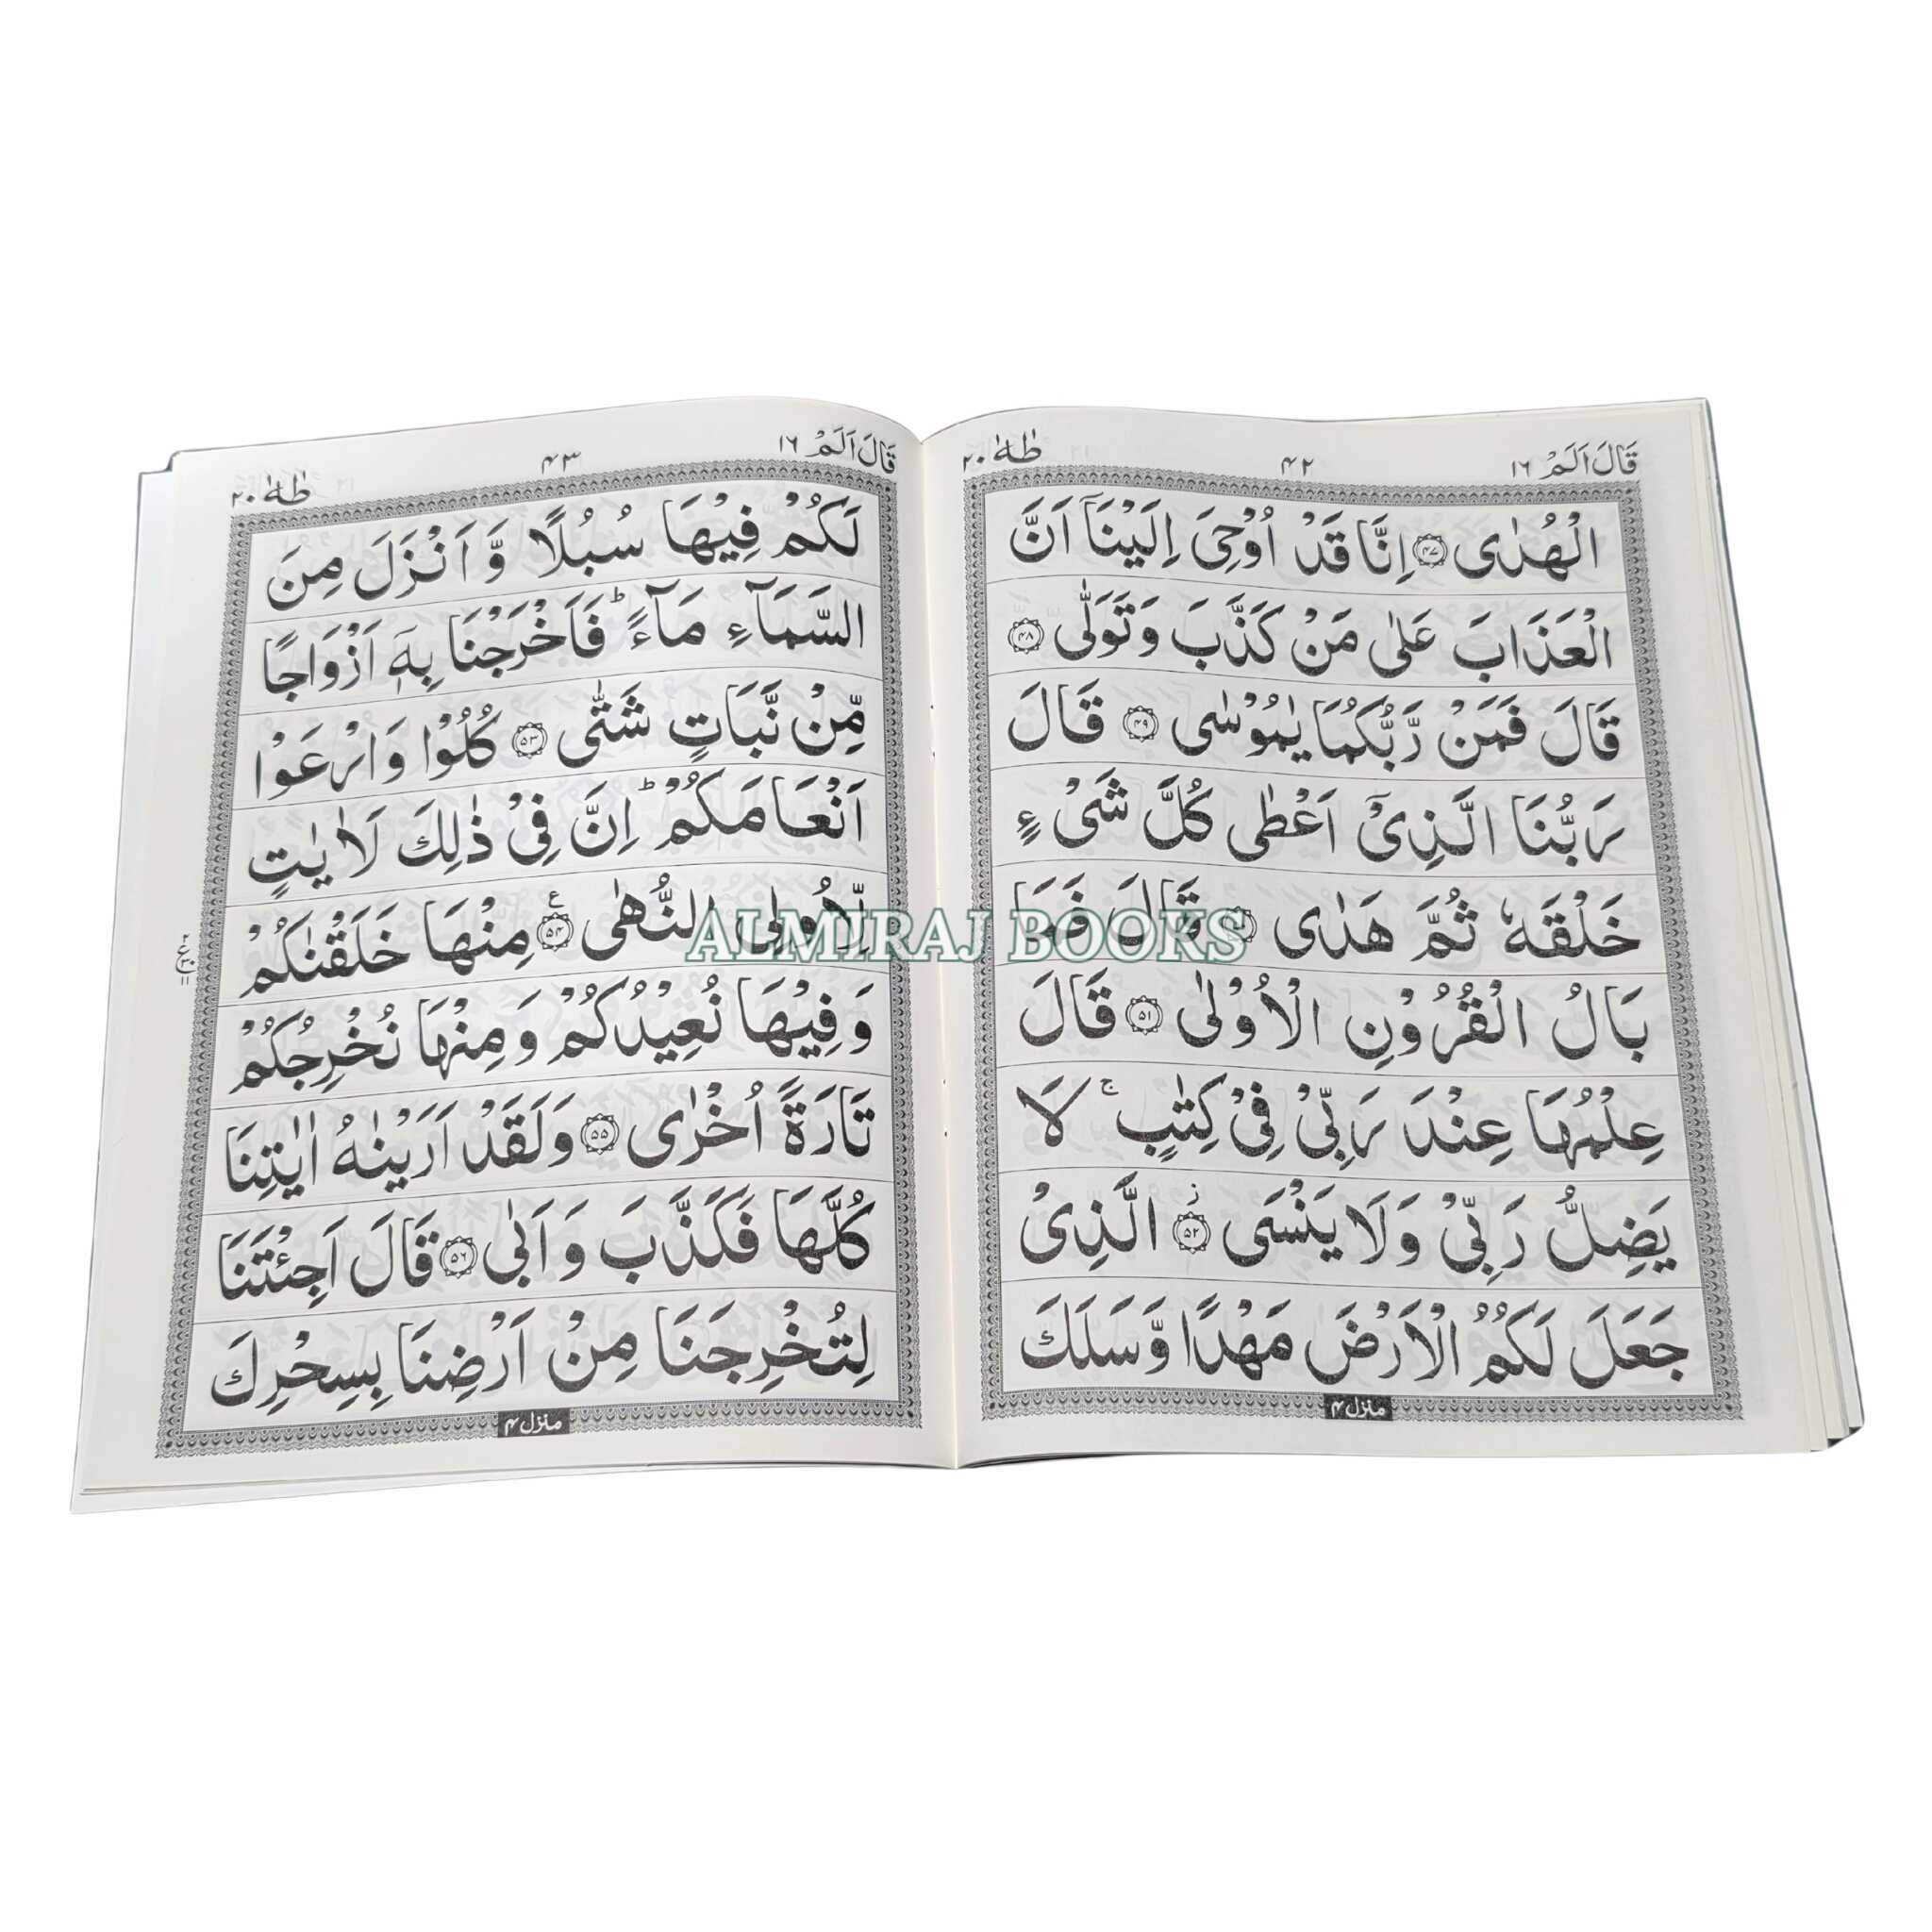 قَالَ اَلَمْ ١٦
٤٢
طٰهٰ ٢٠
الْهُدٰى ﴿٤٧﴾ اِنَّا قَدْ اُوْحِیَ اِلَیْنَاۤ اَنَّ
الْعَذَابَ عَلٰى مَنْ كَذَّبَ وَتَوَلّٰى ﴿٤٨﴾
قَالَ فَمَنْ رَّبُّكُمَا یٰمُوْسٰى ﴿٤٩﴾ قَالَ
رَبُّنَا الَّذِیْۤ اَعْطٰى كُلَّ شَیْءٍ
خَلْقَهٗ ثُمَّ هَدٰى ﴿٥٠﴾ قَالَ فَمَا
بَالُ الْقُرُوْنِ الْاُوْلٰى ﴿٥١﴾ قَالَ
عِلْمُهَا عِنْدَ رَبِّیْ فِیْ كِتٰبٍ ۚ لَا
یَضِلُّ رَبِّیْ وَلَا یَنْسَى ﴿٥٢﴾ؗ الَّذِیْ
جَعَلَ لَكُمُ الْاَرْضَ مَهْدًا وَّسَلَكَ
منزل ٤
قَالَ اَلَمْ ١٦
٤٣
طٰهٰ ٢٠
لَكُمْ فِیْهَا سُبُلًا وَّ اَنْزَلَ مِنَ
السَّمَآءِ مَآءً ؕ فَاَخْرَجْنَا بِهٖۤ اَزْوَاجًا
مِّنْ نَّبَاتٍ شَتّٰى ﴿٥٣﴾ كُلُوْا وَارْعَوْا
اَنْعَامَكُمْ ؕ اِنَّ فِیْ ذٰلِكَ لَاٰیٰتٍ
لِّاُولِی النُّهٰى ﴿٥٤﴾ ع مِنْهَا خَلَقْنٰكُمْ
وَفِیْهَا نُعِیْدُكُمْ وَمِنْهَا نُخْرِجُكُمْ
تَارَةً اُخْرٰى ﴿٥٥﴾ وَلَقَدْ اَرَیْنٰهُ اٰیٰتِنَا
كُلَّهَا فَكَذَّبَ وَ اَبٰى ﴿٥٦﴾ قَالَ اَجِئْتَنَا
لِتُخْرِجَنَا مِنْ اَرْضِنَا بِسِحْرِكَ
منزل ٤
ALMIRAJ BOOKS